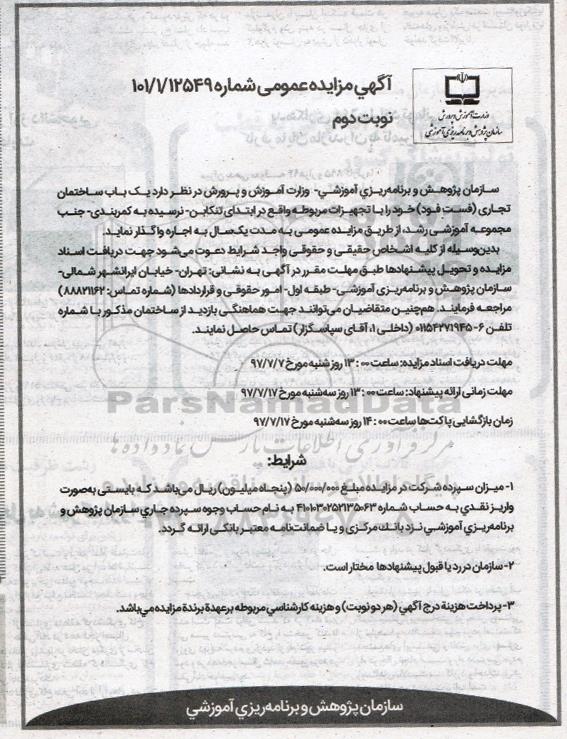 آگهي مزایده عمومی شماره ۱۰۱/۱/۱۲۵۴۹
نوبت دوم
وزارت آموزش و پرورش
سازمان پژوهش و برنامه‌ریزی آموزشی
سازمان پژوهش و برنامه‌ریزي آموزشي- وزارت آموزش و پرورش در نظر دارد یک باب ساختمان
تجاری (فست فود) خود را با تجهیزات مربوطه واقع در ابتدای تنکابن- نرسیده به کمربندی- جنب
مجموعه آموزشی رشد، از طریق مزایده عمومی به مدت یک‌سال به اجاره واگذار نماید.
بدین‌وسیله از کلیه اشخاص حقیقی و حقوقی واجد شرایط دعوت می‌شود جهت دریافت اسناد
مزایده و تحویل پیشنهادها طبق مهلت مقرر در آگهی به نشانی: تهران- خیابان ایرانشهر شمالی-
سازمان پژوهش و برنامه‌ریزی آموزشی- طبقه اول- امور حقوقی و قراردادها (شماره تماس: ۸۸۸۲۱۱۶۲)
مراجعه فرمایند. هم‌چنین متقاضیان می‌توانند جهت هماهنگی بازدید از ساختمان مذکور با شماره
تلفن ۶- ۰۱۱۵۴۲۷۱۹۴۵ (داخلی ۱، آقای سپاسگزار) تماس حاصل نمایند.
مهلت دریافت اسناد مزایده: ساعت ۰۰ : ۱۳ روز شنبه مورخ ۹۷/۷/۷
مهلت زمانی ارائه پیشنهاد: ساعت ۰۰ : ۱۳ روز سه‌شنبه مورخ ۹۷/۷/۱۷
زمان بازگشایی پاکت‌ها ساعت ۰۰ : ۱۴ روز سه‌شنبه مورخ ۹۷/۷/۱۷
ParsNamadData
مرکز فرآوری اطلاعات پارس نماد داده ها
شرایط:
۱- میزان سپرده شرکت در مزایده مبلغ ۵۰/۰۰۰/۰۰۰ (پنجاه میلیون) ریال می‌باشد که بایستی به‌صورت
واریز نقدي به حساب شماره ۴۱۰۱۰۳۰۲۵۲۱۳۵۰۶۳ به نام حساب وجوه سپرده جاري سازمان پژوهش و
برنامه‌ریزي آموزشي نزد بانك مرکزی و یا ضمانت‌نامه معتبر بانکی ارائه گردد.
۲- سازمان در رد یا قبول پیشنهادها مختار است.
۳- پرداخت هزینهٔ درج آگهي (هر دو نوبت) و هزینه کارشناسي مربوطه برعهدهٔ برندهٔ مزایده مي‌باشد.
سازمان پژوهش و برنامه‌ریزي آموزشي